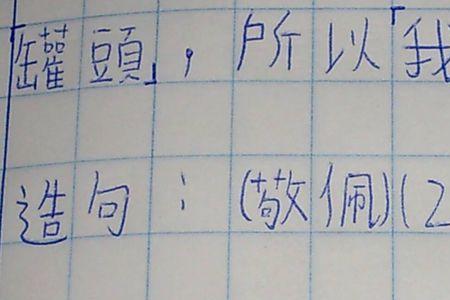 「罐頭」,所以「我
造句:(敬佩)(2